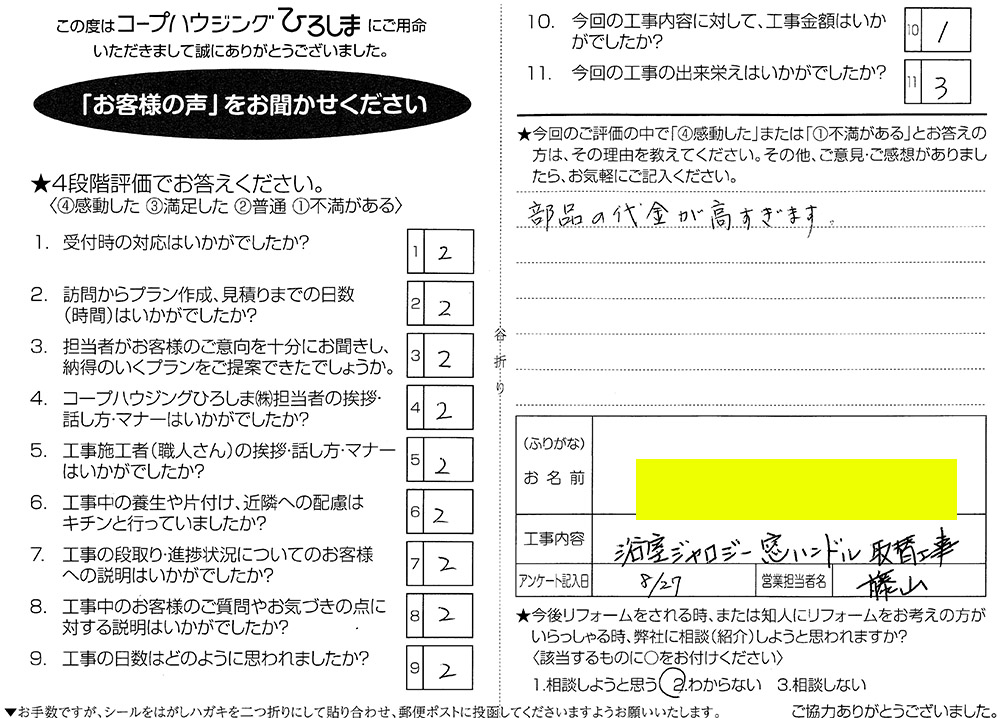 この度はコープハウジングひろしまにご用命
いただきまして誠にありがとうございました。
「お客様の声」をお聞かせください
★4段階評価でお答えください。
〈④感動した ③満足した ②普通 ①不満がある〉
1. 受付時の対応はいかがでしたか?
1 2
2. 訪問からプラン作成、見積りまでの日数
（時間）はいかがでしたか?
2 2
3. 担当者がお客様のご意向を十分にお聞きし、
納得のいくプランをご提案できたでしょうか。
3 2
4. コープハウジングひろしま㈱担当者の挨拶・
話し方・マナーはいかがでしたか?
4 2
5. 工事施工者（職人さん）の挨拶・話し方・マナー
はいかがでしたか?
5 2
6. 工事中の養生や片付け、近隣への配慮は
キチンと行っていましたか?
6 2
7. 工事の段取り・進捗状況についてのお客様
への説明はいかがでしたか?
7 2
8. 工事中のお客様のご質問やお気づきの点に
対する説明はいかがでしたか?
8 2
9. 工事の日数はどのように思われましたか?
9 2
▼お手数ですが、シールをはがしハガキを二つ折りにして貼り合わせ、郵便ポストに投函してくださいますようお願いいたします。
谷折り
10. 今回の工事内容に対して、工事金額はいか
がでしたか?
10 1
11. 今回の工事の出来栄えはいかがでしたか?
11 3
★今回のご評価の中で「④感動した」または「①不満がある」とお答えの
方は、その理由を教えてください。その他、ご意見・ご感想がありまし
たら、お気軽にご記入ください。
部品の代金が高すぎます。
（ふりがな）
お名前
工事内容 浴室ジャロジー窓ハンドル取替工事
アンケート記入日 8/27 営業担当者名 藤山
★今後リフォームをされる時、または知人にリフォームをお考えの方が
いらっしゃる時、弊社に相談（紹介）しようと思われますか?
〈該当するものに○をお付けください〉
1.相談しようと思う 2.わからない 3.相談しない
ご協力ありがとうございました。